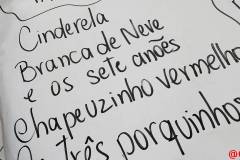 Cinderela
Branca de Neve
e os sete anões
Chapeuzinho Vermelho
três porquinhos